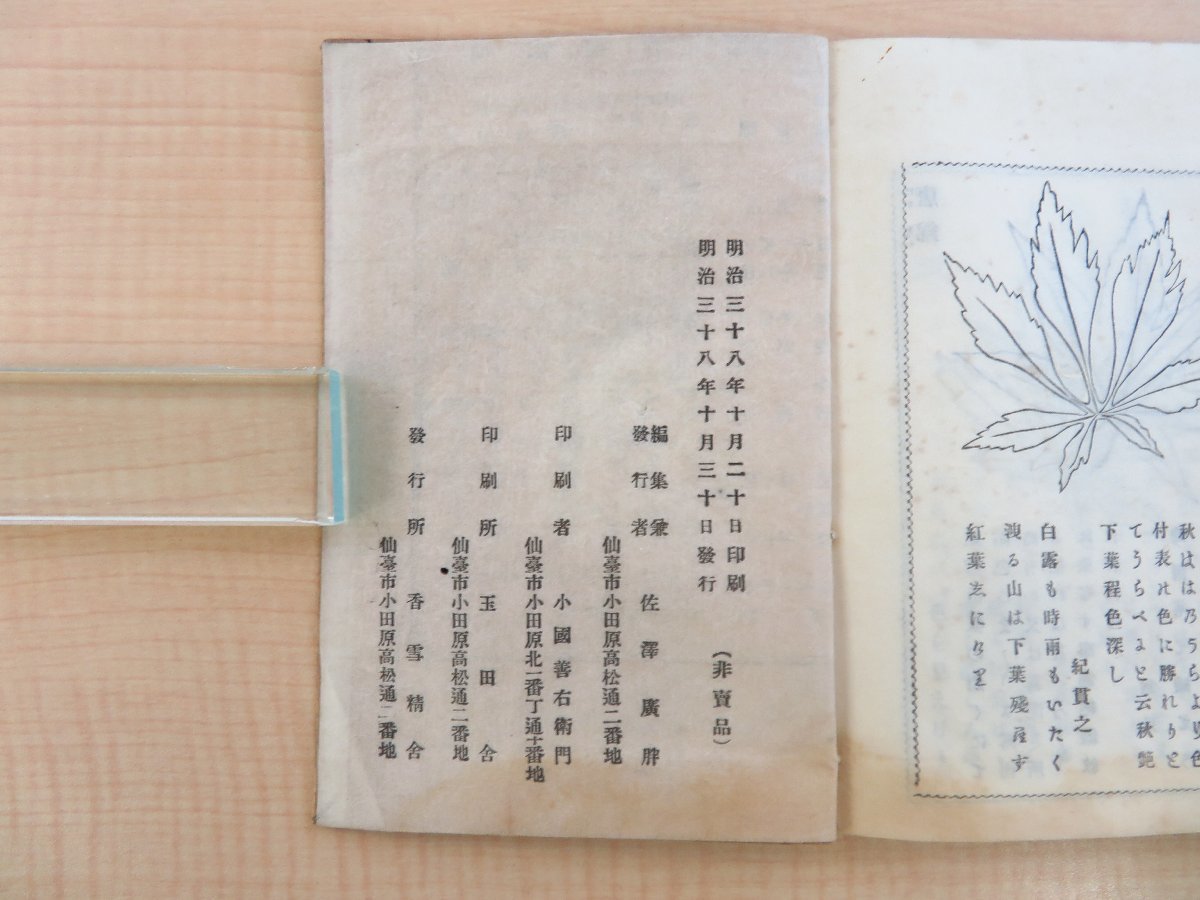 秋はは乃うらより色
付表れ色に勝れりと
てうらべにと云秋艶
下葉程色深し
紀貫之
白露も時雨もいたく
洩る山は下葉殘らす
紅葉志にけり
明治三十八年十月二十日印刷
明治三十八年十月三十日發行
(非賣品)
編集兼
發行者
佐澤廣胖
仙臺市小田原高松通二番地
印刷者
小國善右衛門
仙臺市小田原北一番丁通十番地
印刷所
玉田舍
仙臺市小田原高松通二番地
發行所
香雪精舍
仙臺市小田原高松通二番地